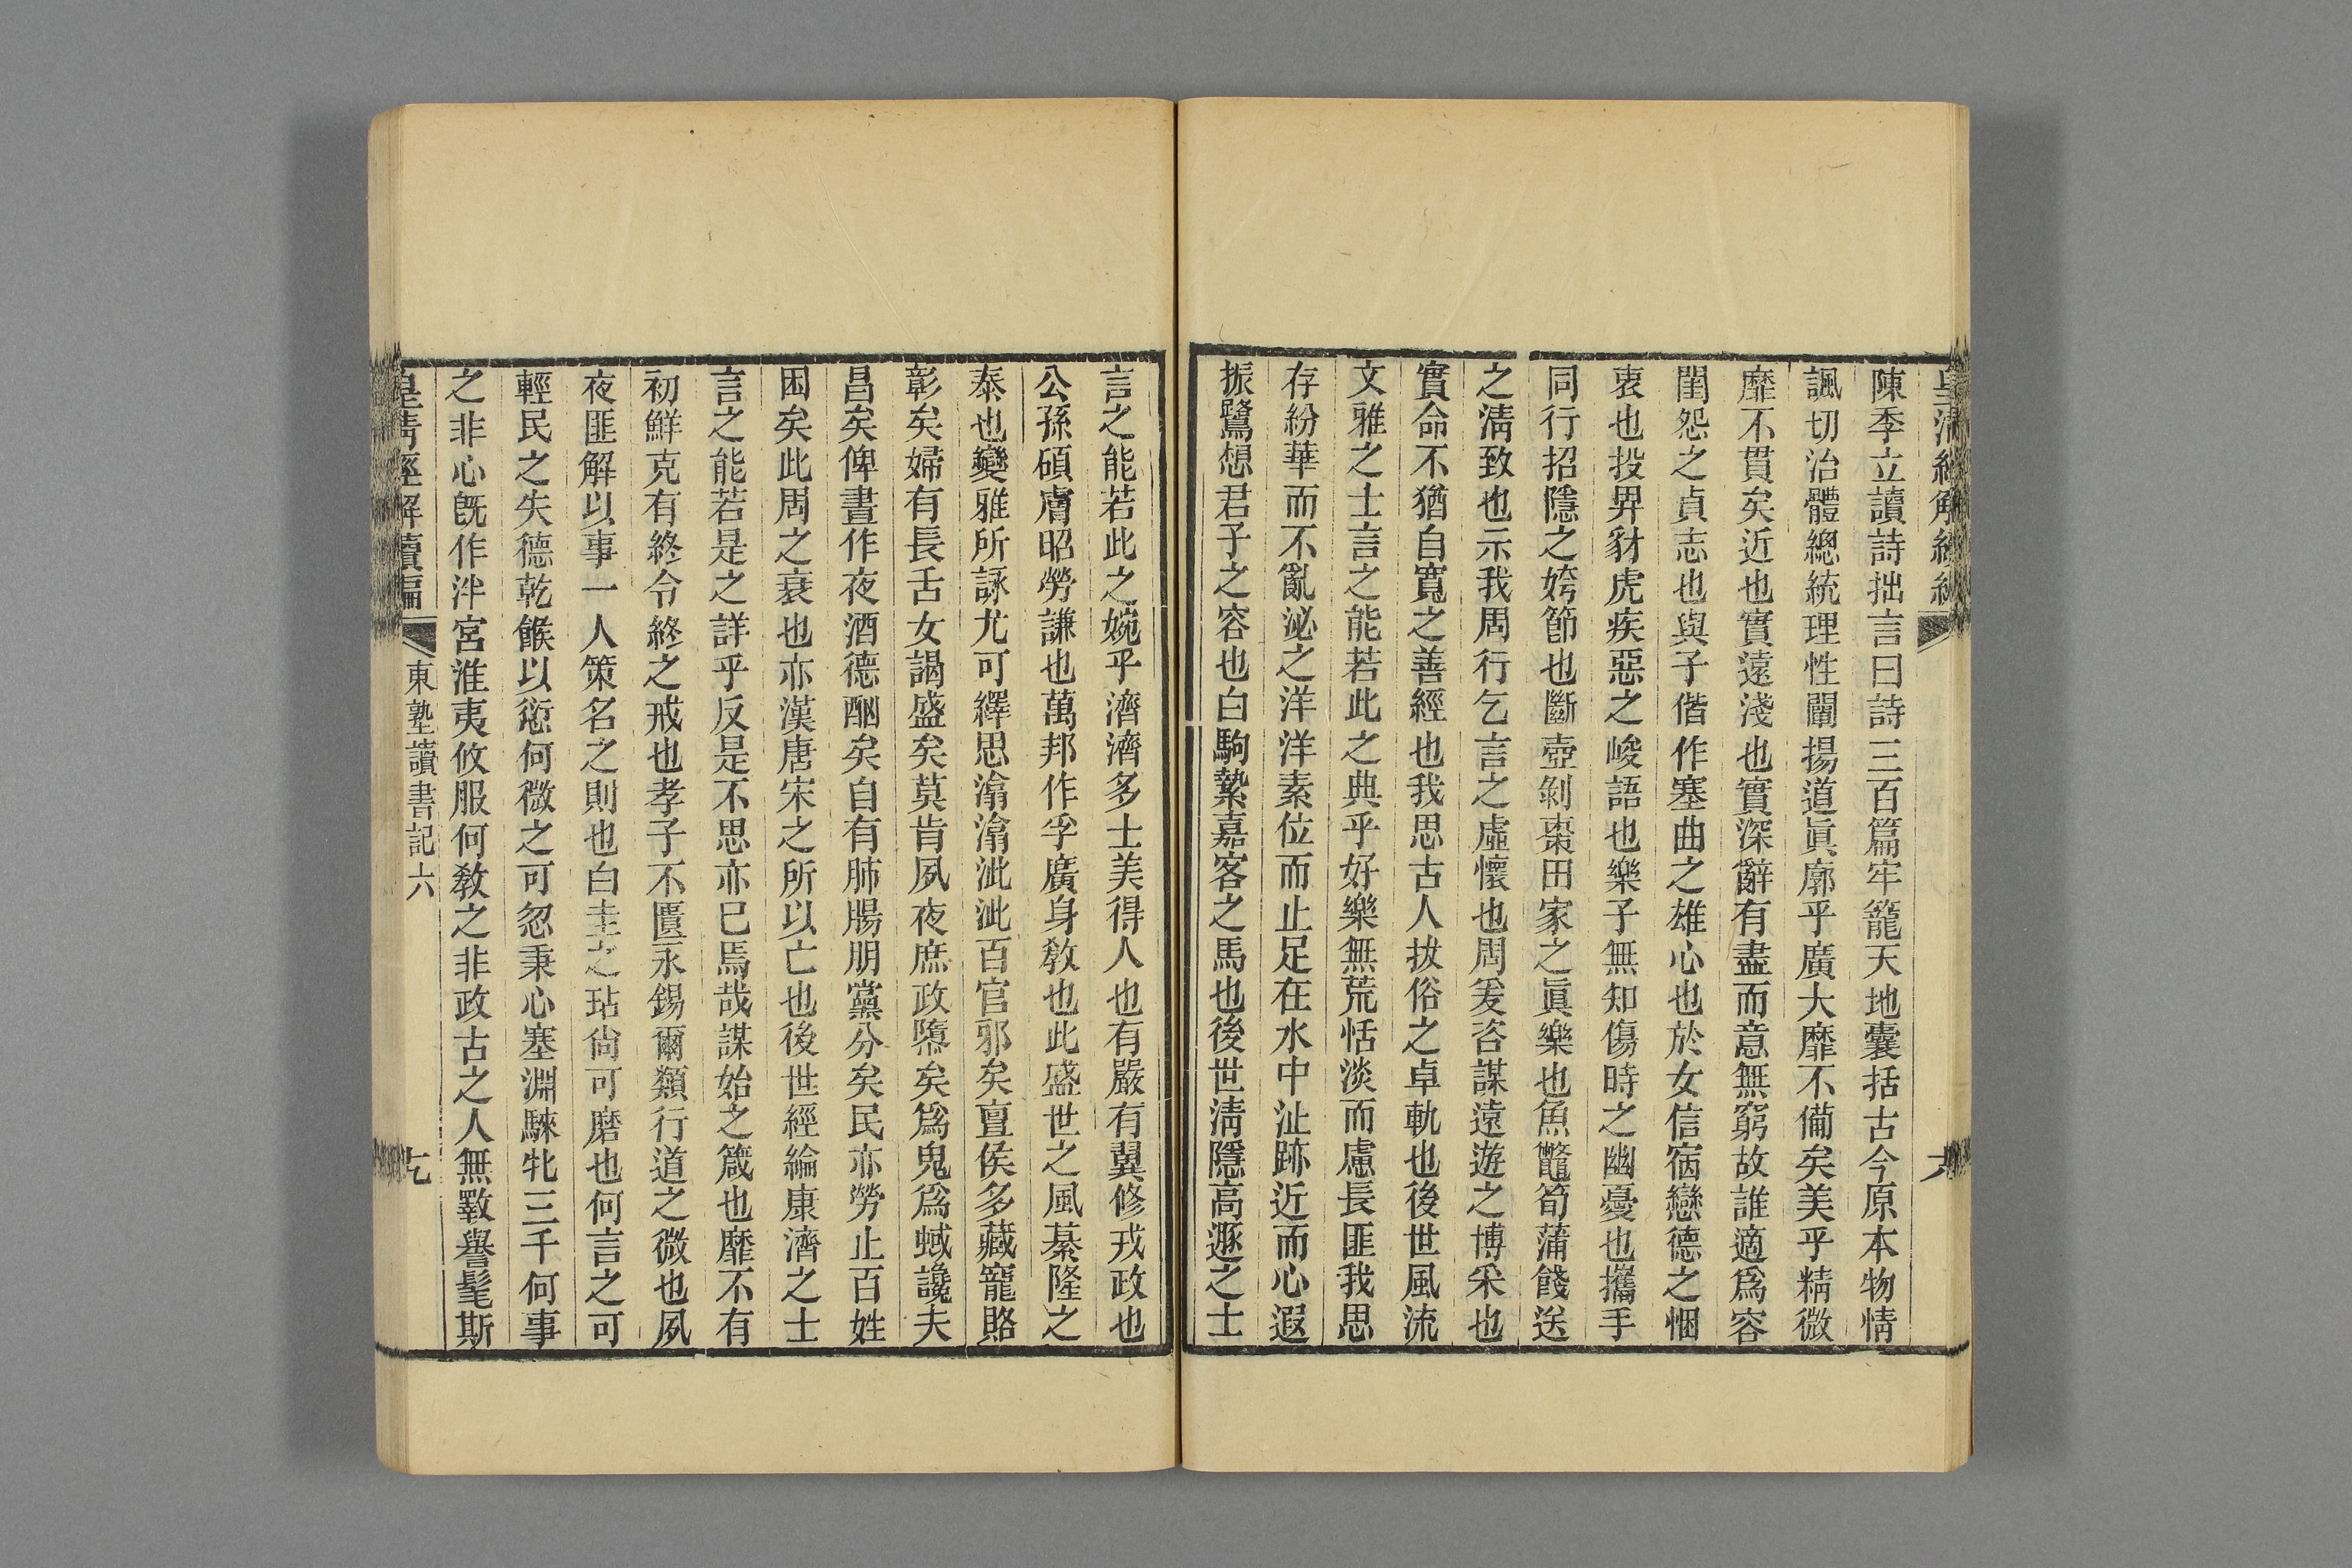 陳季立讀詩拙言曰詩三百篇牢籠天地囊括古今原本物情
諷切治體總統理性闡揚道眞廓乎廣大靡不備矣美乎精微
靡不貫矣近也實遠淺也實深辭有盡而意無窮故誰適爲容
閨怨之貞志也與子偕作塞曲之雄心也於女信宿戀德之悃
衷也投畀豺虎疾惡之峻語也樂子無知傷時之幽憂也攜手
同行招隱之姱節也斷壺剝棗田家之眞樂也魚鼈筍蒲餞送
之淸致也示我周行乞言之虛懷也周爰咨謀遠遊之博采也
實命不猶自寬之善經也我思古人拔俗之卓軌也後世風流
文雅之士言之能若此之典乎好樂無荒恬淡而慮長匪我思
存紛華而不亂泌之洋洋素位而止足在水中沚跡近而心遐
振鷺想君子之容也白駒縶嘉客之馬也後世淸隱高遯之士
言之能若此之婉乎濟濟多士美得人也有嚴有翼修戎政也
公孫碩膚昭勞謙也萬邦作孚廣身敎也此盛世之風綦隆之
泰也變雅所詠尤可繹思潝潝訿訿百官邪矣亶侯多藏寵賂
彰矣婦有長舌女謁盛矣莫肯夙夜庶政隳矣爲鬼爲蜮讒夫
昌矣俾晝作夜酒德酗矣自有肺腸朋黨分矣民亦勞止百姓
困矣此周之衰也亦漢唐宋之所以亡也後世經綸康濟之士
言之能若是之詳乎反是不思亦已焉哉謀始之箴也靡不有
初鮮克有終令終之戒也孝子不匱永錫爾類行道之微也夙
夜匪解以事一人策名之則也白圭之玷尙可磨也何言之可
輕民之失德乾餱以愆何微之可忽秉心塞淵騋牝三千何事
之非心旣作泮宮淮夷攸服何敎之非政古之人無斁譽髦斯
皇淸經解續編
東塾讀書記六